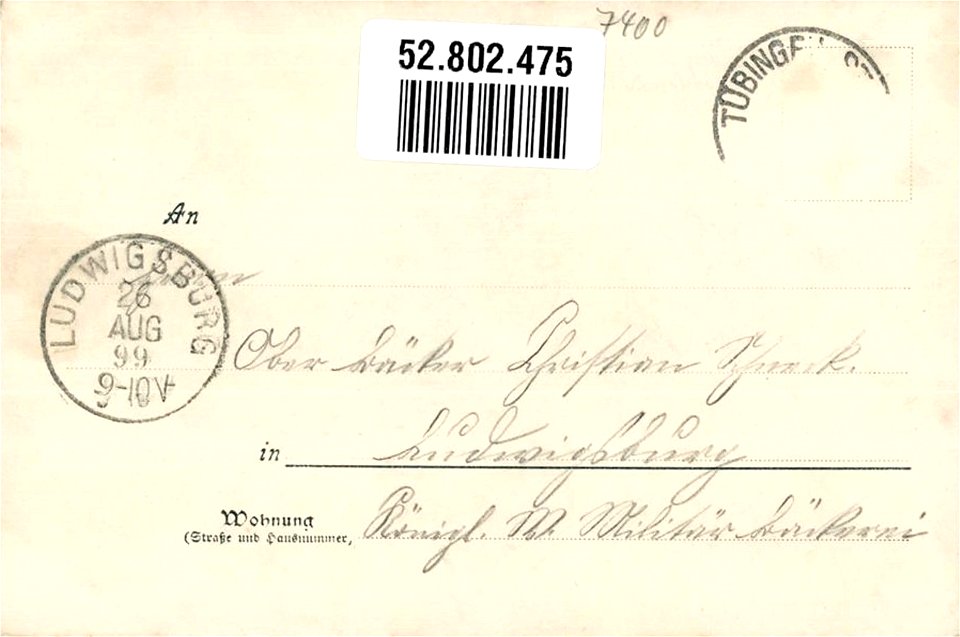 7400
52.802.475
TÜBINGE
An
LUDWIGSBURG
26
AUG
99
9-10V
Ober Bäcker Christian Schneck.
in Ludwigsburg
Wohnung
(Straße und Hausnummer)
Königl. W. Militär Bäckerei